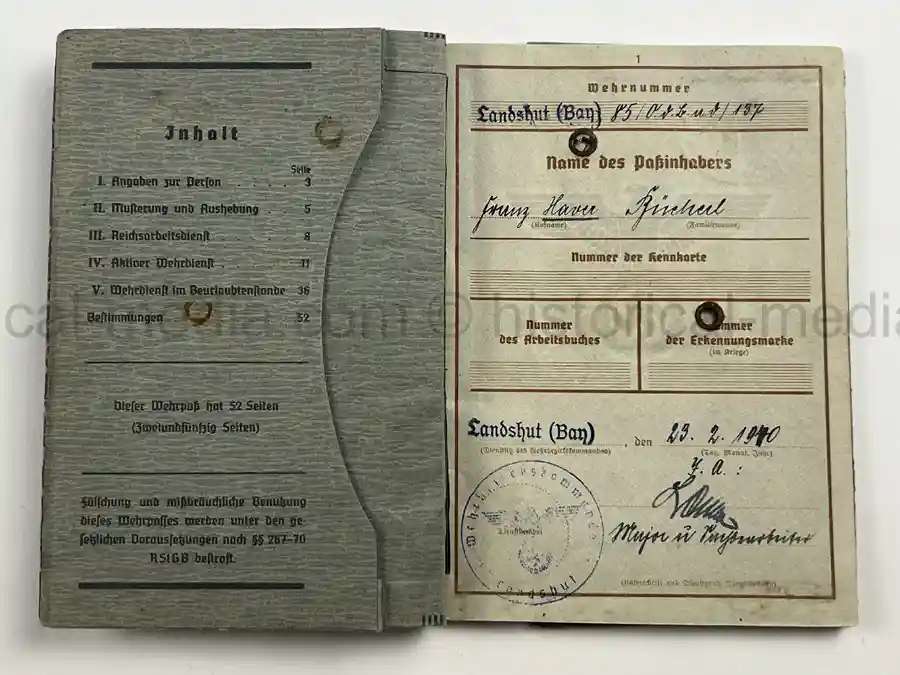 Inhalt
Seite
I. Angaben zur Person . . . . 3
II. Musterung und Aushebung . 5
III. Reichsarbeitsdienst . . . . 8
IV. Aktiver Wehrdienst . . . . 11
V. Wehrdienst im Beurlaubtenstande 36
Bestimmungen 52
Dieser Wehrpaß hat 52 Seiten
(Zweiundfünfzig Seiten)
Fälschung und mißbräuchliche Benutzung
dieses Wehrpasses werden unter den ge-
setzlichen Voraussetzungen nach §§ 267-70
RStGB bestraft.
1
Wehrnummer
Landshut (Bay)
Name des Paßinhabers
Franz Xaver
(Rufname) (Familienname)
Nummer der Kennkarte
Nummer
des Arbeitsbuches
der Erkennungsmarke
(im Kriege)
Landshut (Bay), den 23. 2. 1940
(Dienstsitz des Wehrbezirkskommandos) (Tag, Monat, Jahr)
Major u
Wehrbezirkskommando
Landshut
© historical-media